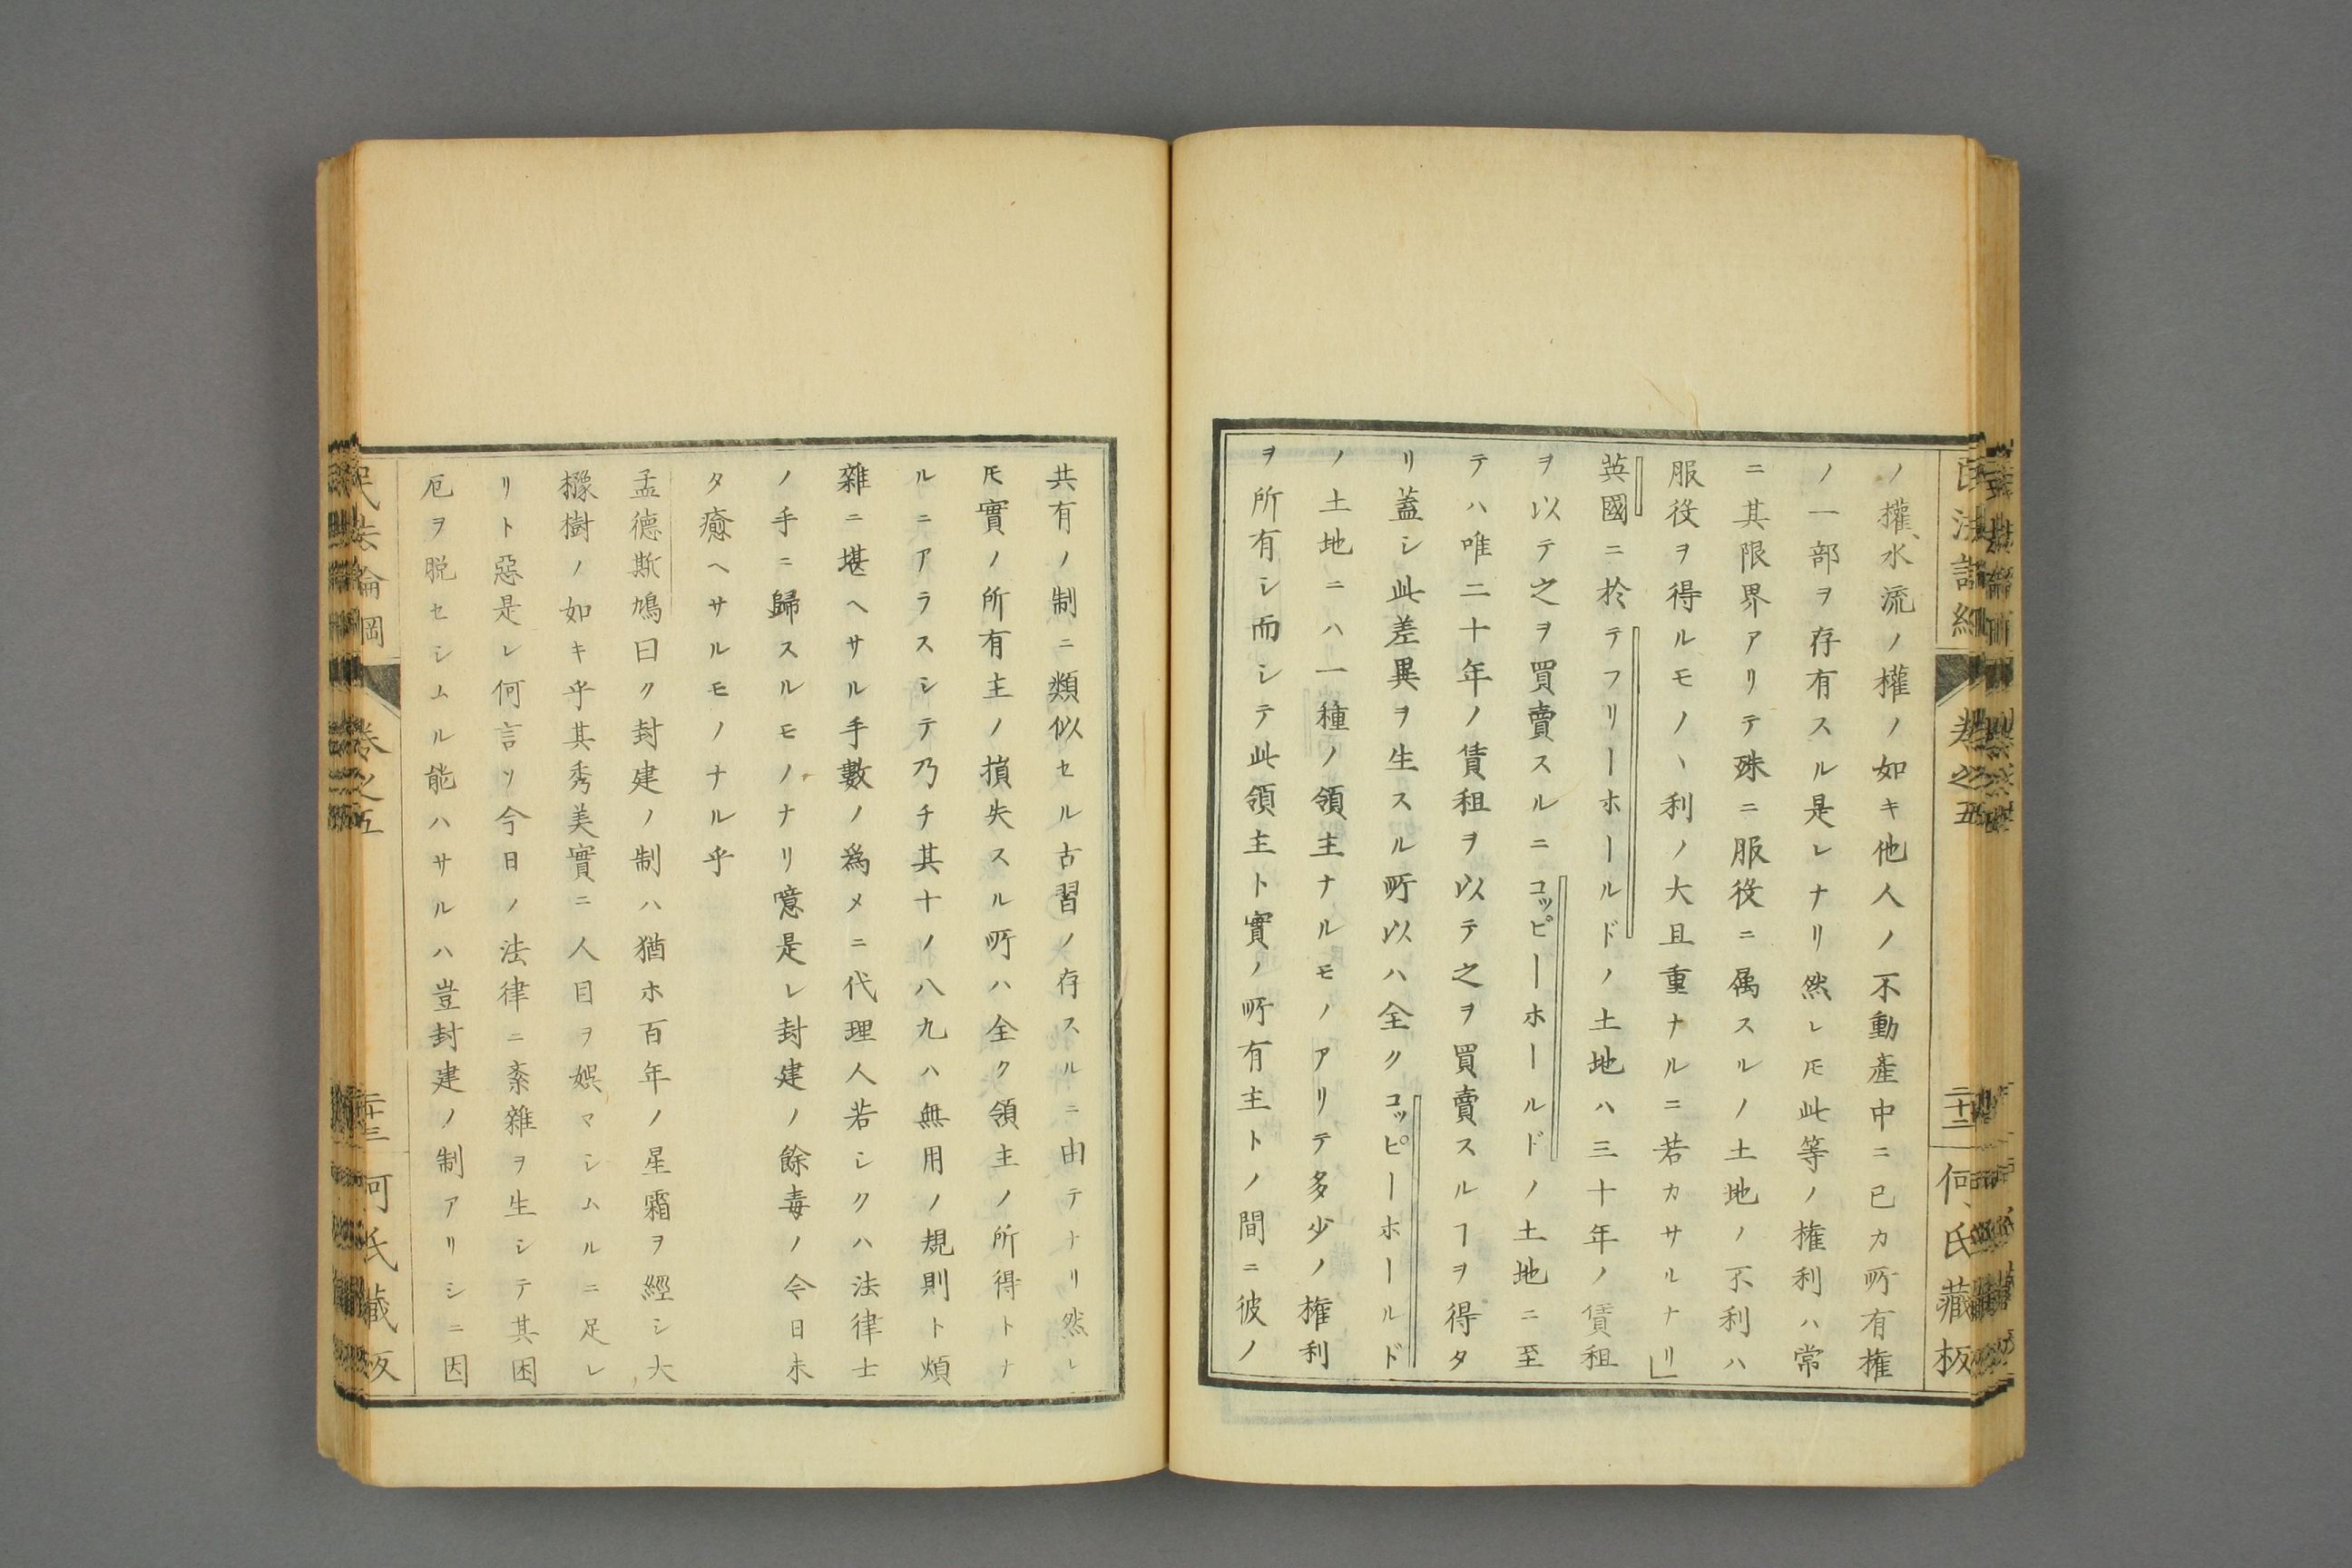 ノ權水流ノ權ノ如キ他人ノ不動產中ニ已カ所有権
ノ一部ヲ存有スル是レナリ然レ𪜈此等ノ権利ハ常
ニ其限界アリテ殊ニ服役ニ属スルノ土地ノ不利ハ
服役ヲ得ルモノヽ利ノ大且重ナルニ若カサルナリ」
英國ニ於テフリーホールドノ土地ハ三十年ノ賃租
ヲ以テ之ヲ買賣スルニコッピーホールドノ土地ニ至
テハ唯二十年ノ賃租ヲ以テ之ヲ買賣スルヿヲ得タ
リ蓋シ此差異ヲ生スル所以ハ全クコッピーホールド
ノ土地ニハ一種ノ領主ナルモノアリテ多少ノ権利
ヲ所有シ而シテ此領主ト實ノ所有主トノ間ニ彼ノ
共有ノ制ニ類似セル古習ノ存スルニ由テナリ然レ
𪜈實ノ所有主ノ損失スル所ハ全ク領主ノ所得トナ
ルニアラスシテ乃チ其十ノ八九ハ無用ノ規則ト煩
雜ニ堪ヘサル手數ノ爲メニ代理人若シクハ法律士
ノ手ニ歸スルモノナリ噫是レ封建ノ餘毒ノ今日未
タ癒ヘサルモノナル乎
孟德斯鳩曰ク封建ノ制ハ猶ホ百年ノ星霜ヲ經シ大
橡樹ノ如キ乎其秀美實ニ人目ヲ娯マシムルニ足レ
リト惡是レ何言ソ今日ノ法律ニ紊雜ヲ生シテ其困
厄ヲ脱セシムル能ハサルハ豈封建ノ制アリシニ因
卷之五
二十二
何氏藏板
卷之五
二十三
何氏藏板